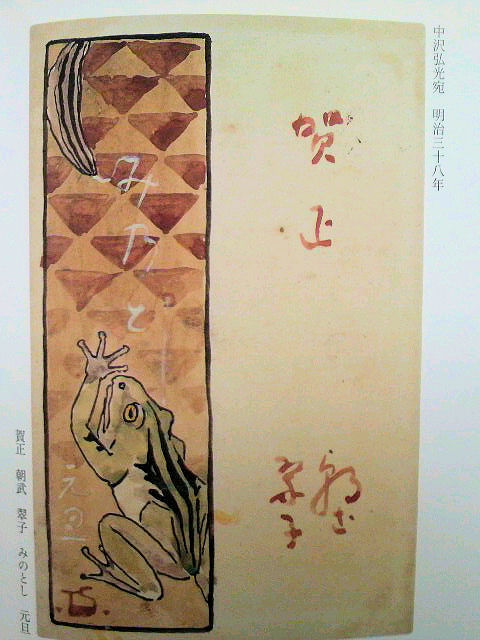 中沢弘光宛 明治三十八年
賀正
みのとし
元旦
TS
賀正 朝武 翠子 みのとし 元旦